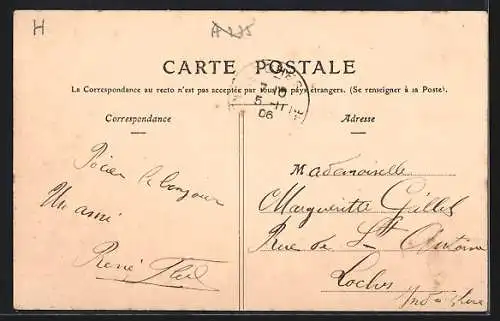 H
A 235
CARTE POSTALE
La Correspondance au recto n'est pas acceptée par tous les pays étrangers. (Se renseigner à la Poste).
Correspondance
Adresse
5-11
06
le bonjour
Un ami
René
Mademoiselle
Margueritte Gillet
Rue de St Antoine
Loches
Indre & Loire